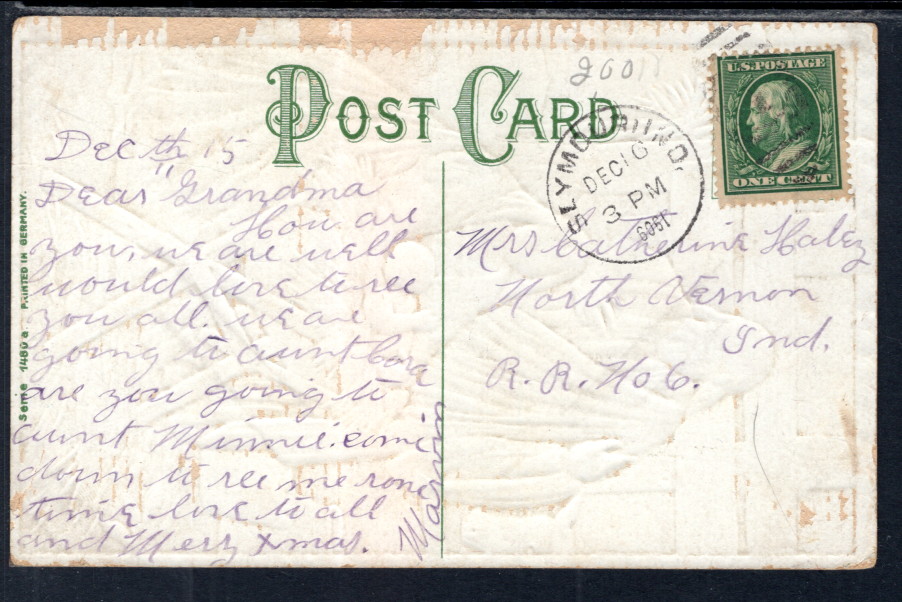 POST CARD
2001
U.S. POSTAGE
ONE CENT
SEYMOUR, IND.
DEC 16
3 PM
1909
Dec th 15
Dear Grandma
How are
you, we are well
would love to see
you all. we are
going to aunt Cora
are you going to
aunt Minnie. come
down to see me some
time love to all
and Merry Xmas.
Marvin
Mrs Catherine Haley
North Vernon
Ind.
R. R. No 6.
Serie 1480 a PRINTED IN GERMANY.